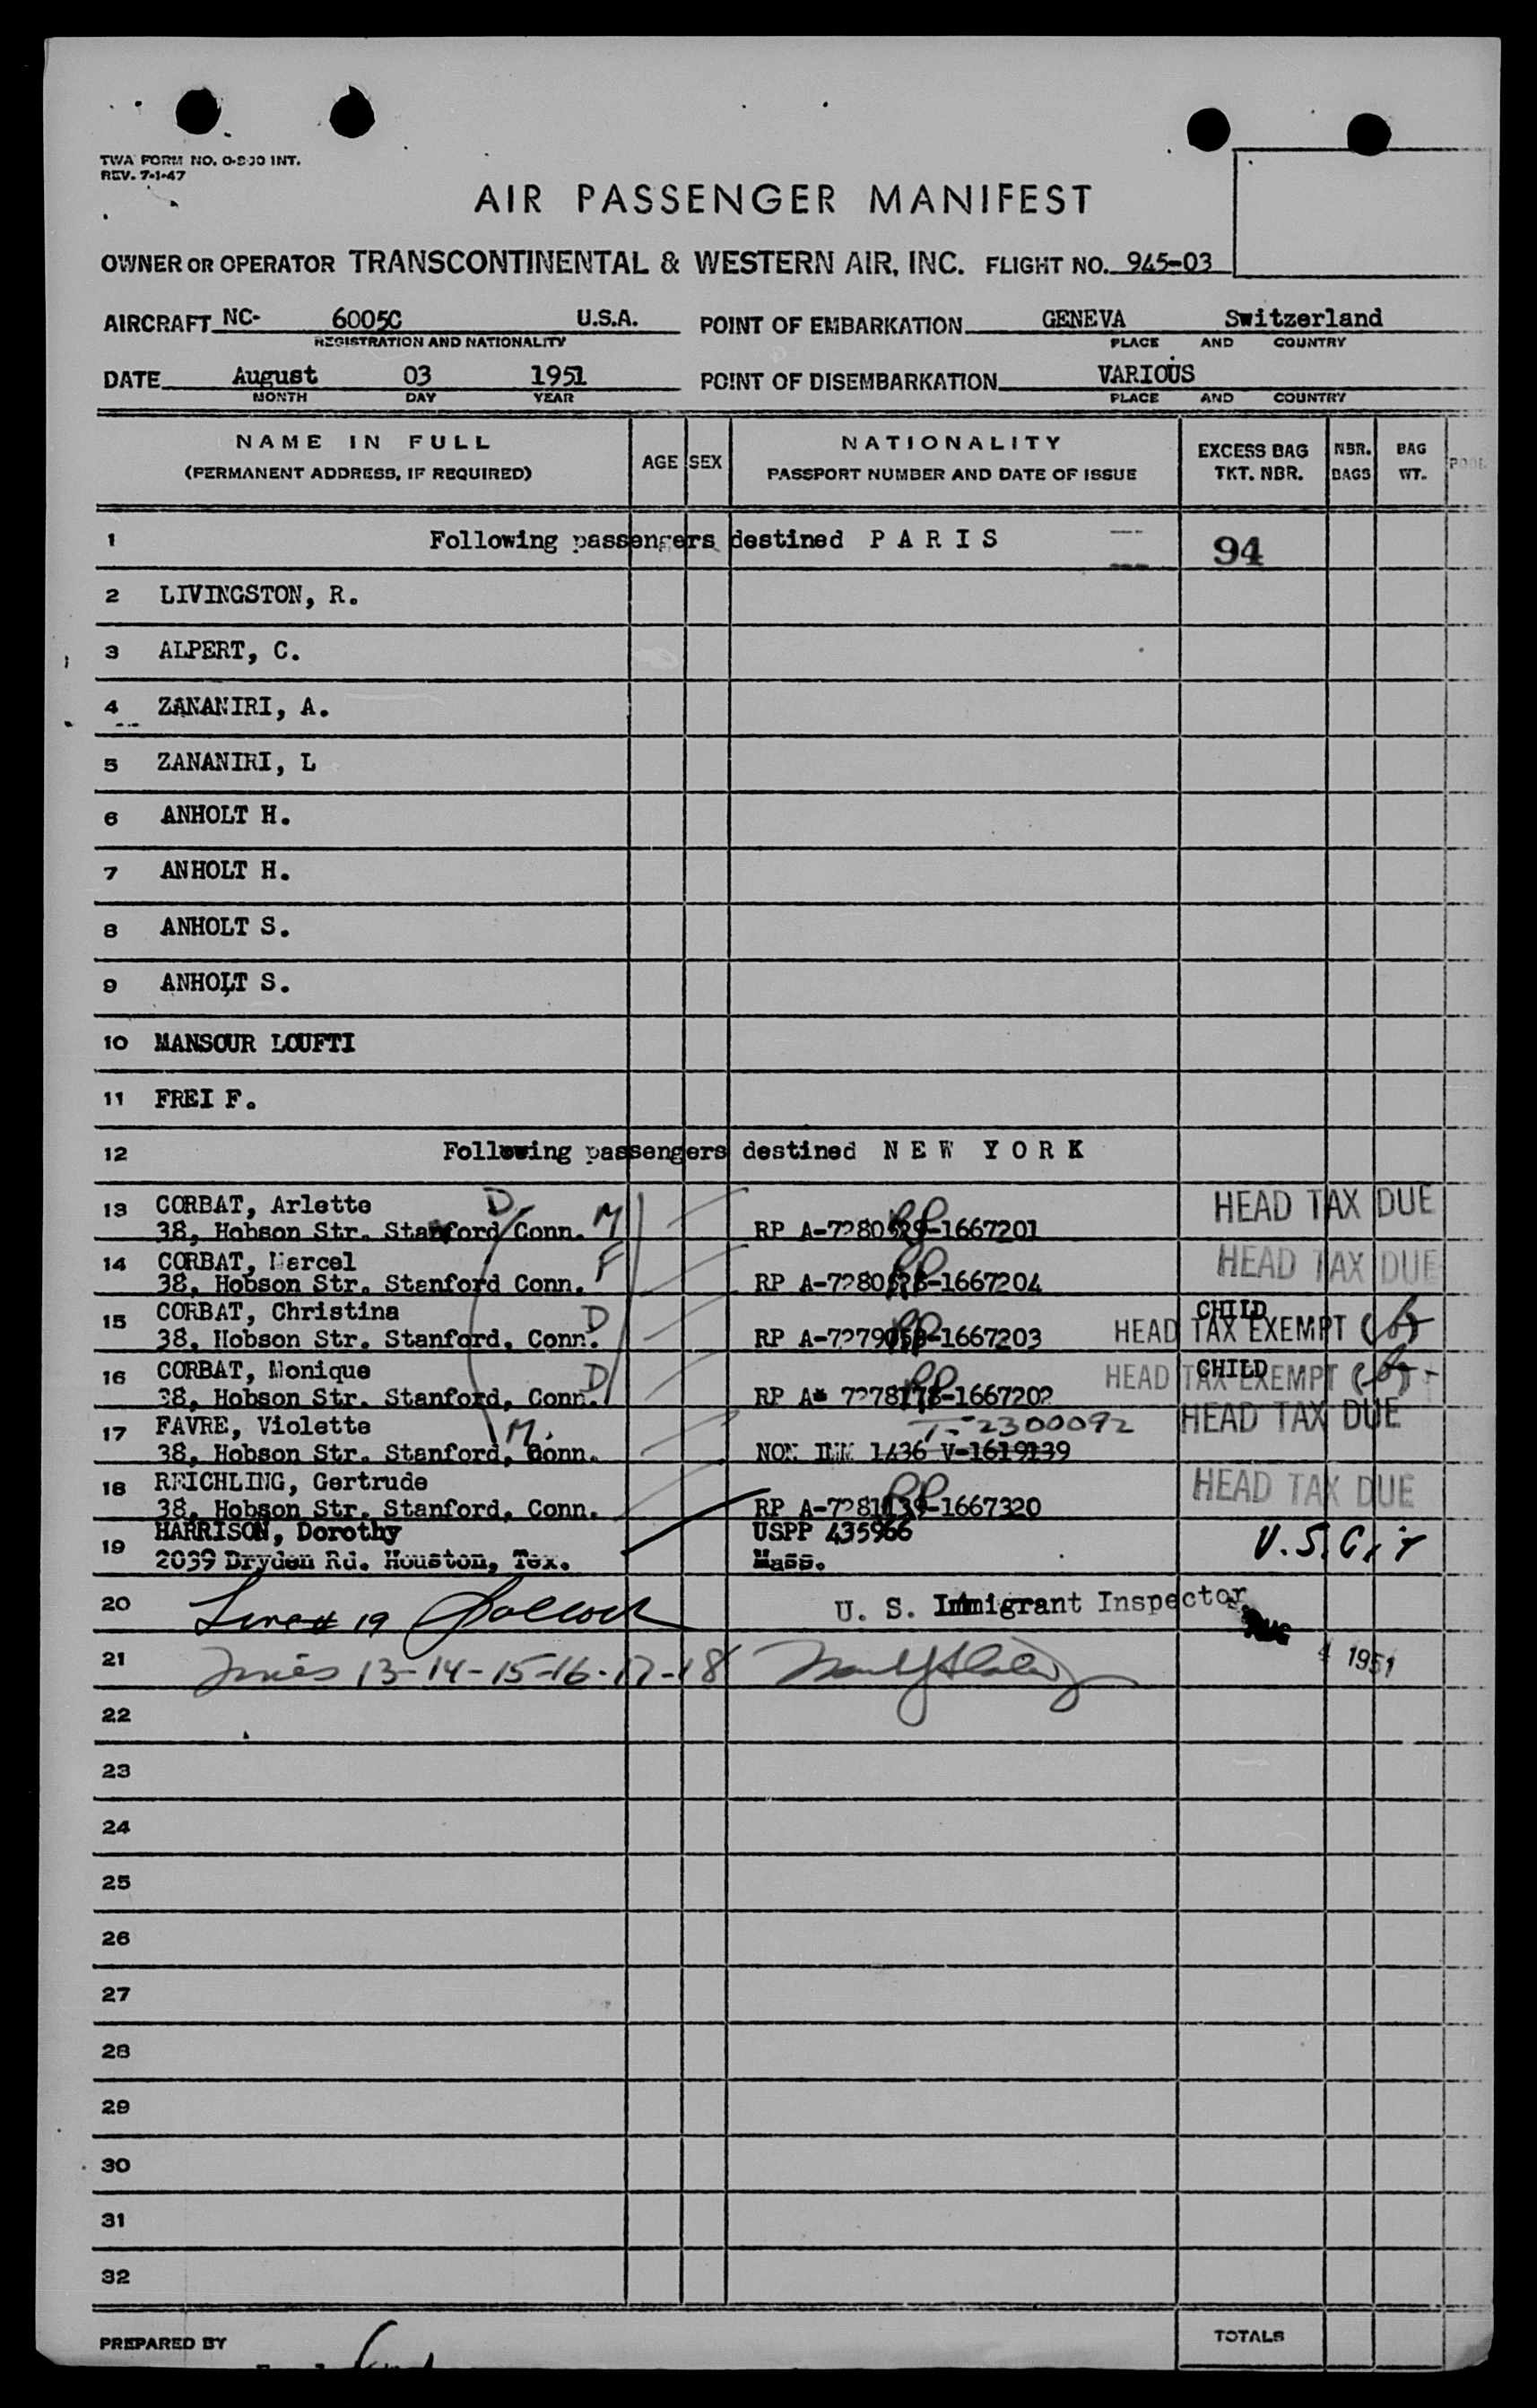 TWA FORM NO. O-800 INT.
REV. 7-1-47
AIR PASSENGER MANIFEST
OWNER OR OPERATOR TRANSCONTINENTAL & WESTERN AIR, INC. FLIGHT NO. 945-03
AIRCRAFT NC- 6005C U.S.A. POINT OF EMBARKATION GENEVA Switzerland
REGISTRATION AND NATIONALITY PLACE AND COUNTRY
DATE August 03 1951 POINT OF DISEMBARKATION VARIOUS
MONTH DAY YEAR PLACE AND COUNTRY
NAME IN FULL (PERMANENT ADDRESS, IF REQUIRED) AGE SEX NATIONALITY PASSPORT NUMBER AND DATE OF ISSUE EXCESS BAG TKT. NBR. NBR. BAGS BAG WT.
1 Following passengers destined P A R I S 94
2 LIVINGSTON, R.
3 ALPERT, C.
4 ZANANIRI, A.
5 ZANANIRI, L
6 ANHOLT H.
7 ANHOLT H.
8 ANHOLT S.
9 ANHOLT S.
10 MANSOUR LOUFTI
11 FREI F.
12 Following passengers destined N E W Y O R K
13 CORBAT, Arlette D HEAD TAX DUE
38, Hobson Str. Stanford Conn. M RP -1667201
14 CORBAT, Marcel F HEAD TAX DUE
38, Hobson Str. Stanford Conn. RP -1667204
15 CORBAT, Christina D CHILD
38, Hobson Str. Stanford, Conn. RP -1667203 HEAD TAX EXEMPT
16 CORBAT, Monique D CHILD
38, Hobson Str. Stanford, Conn. RP -1667202 HEAD TAX EXEMPT
17 FAVRE, Violette M. T-2300092 HEAD TAX DUE
38, Hobson Str. Stanford, Conn. NON IMM 1436 V-1619139
18 REICHLING, Gertrude HEAD TAX DUE
38, Hobson Str. Stanford, Conn. RP -1667320
19 HARRISON, Dorothy USPP 435966 U.S. Cit
2039 Dryden Rd. Houston, Tex. Mass.
20 Line # 19 U. S. Immigrant Inspector
21 Lines 13-14-15-16-17-18 AUG 4 1951
22
23
24
25
26
27
28
29
30
31
32
PREPARED BY TOTALS